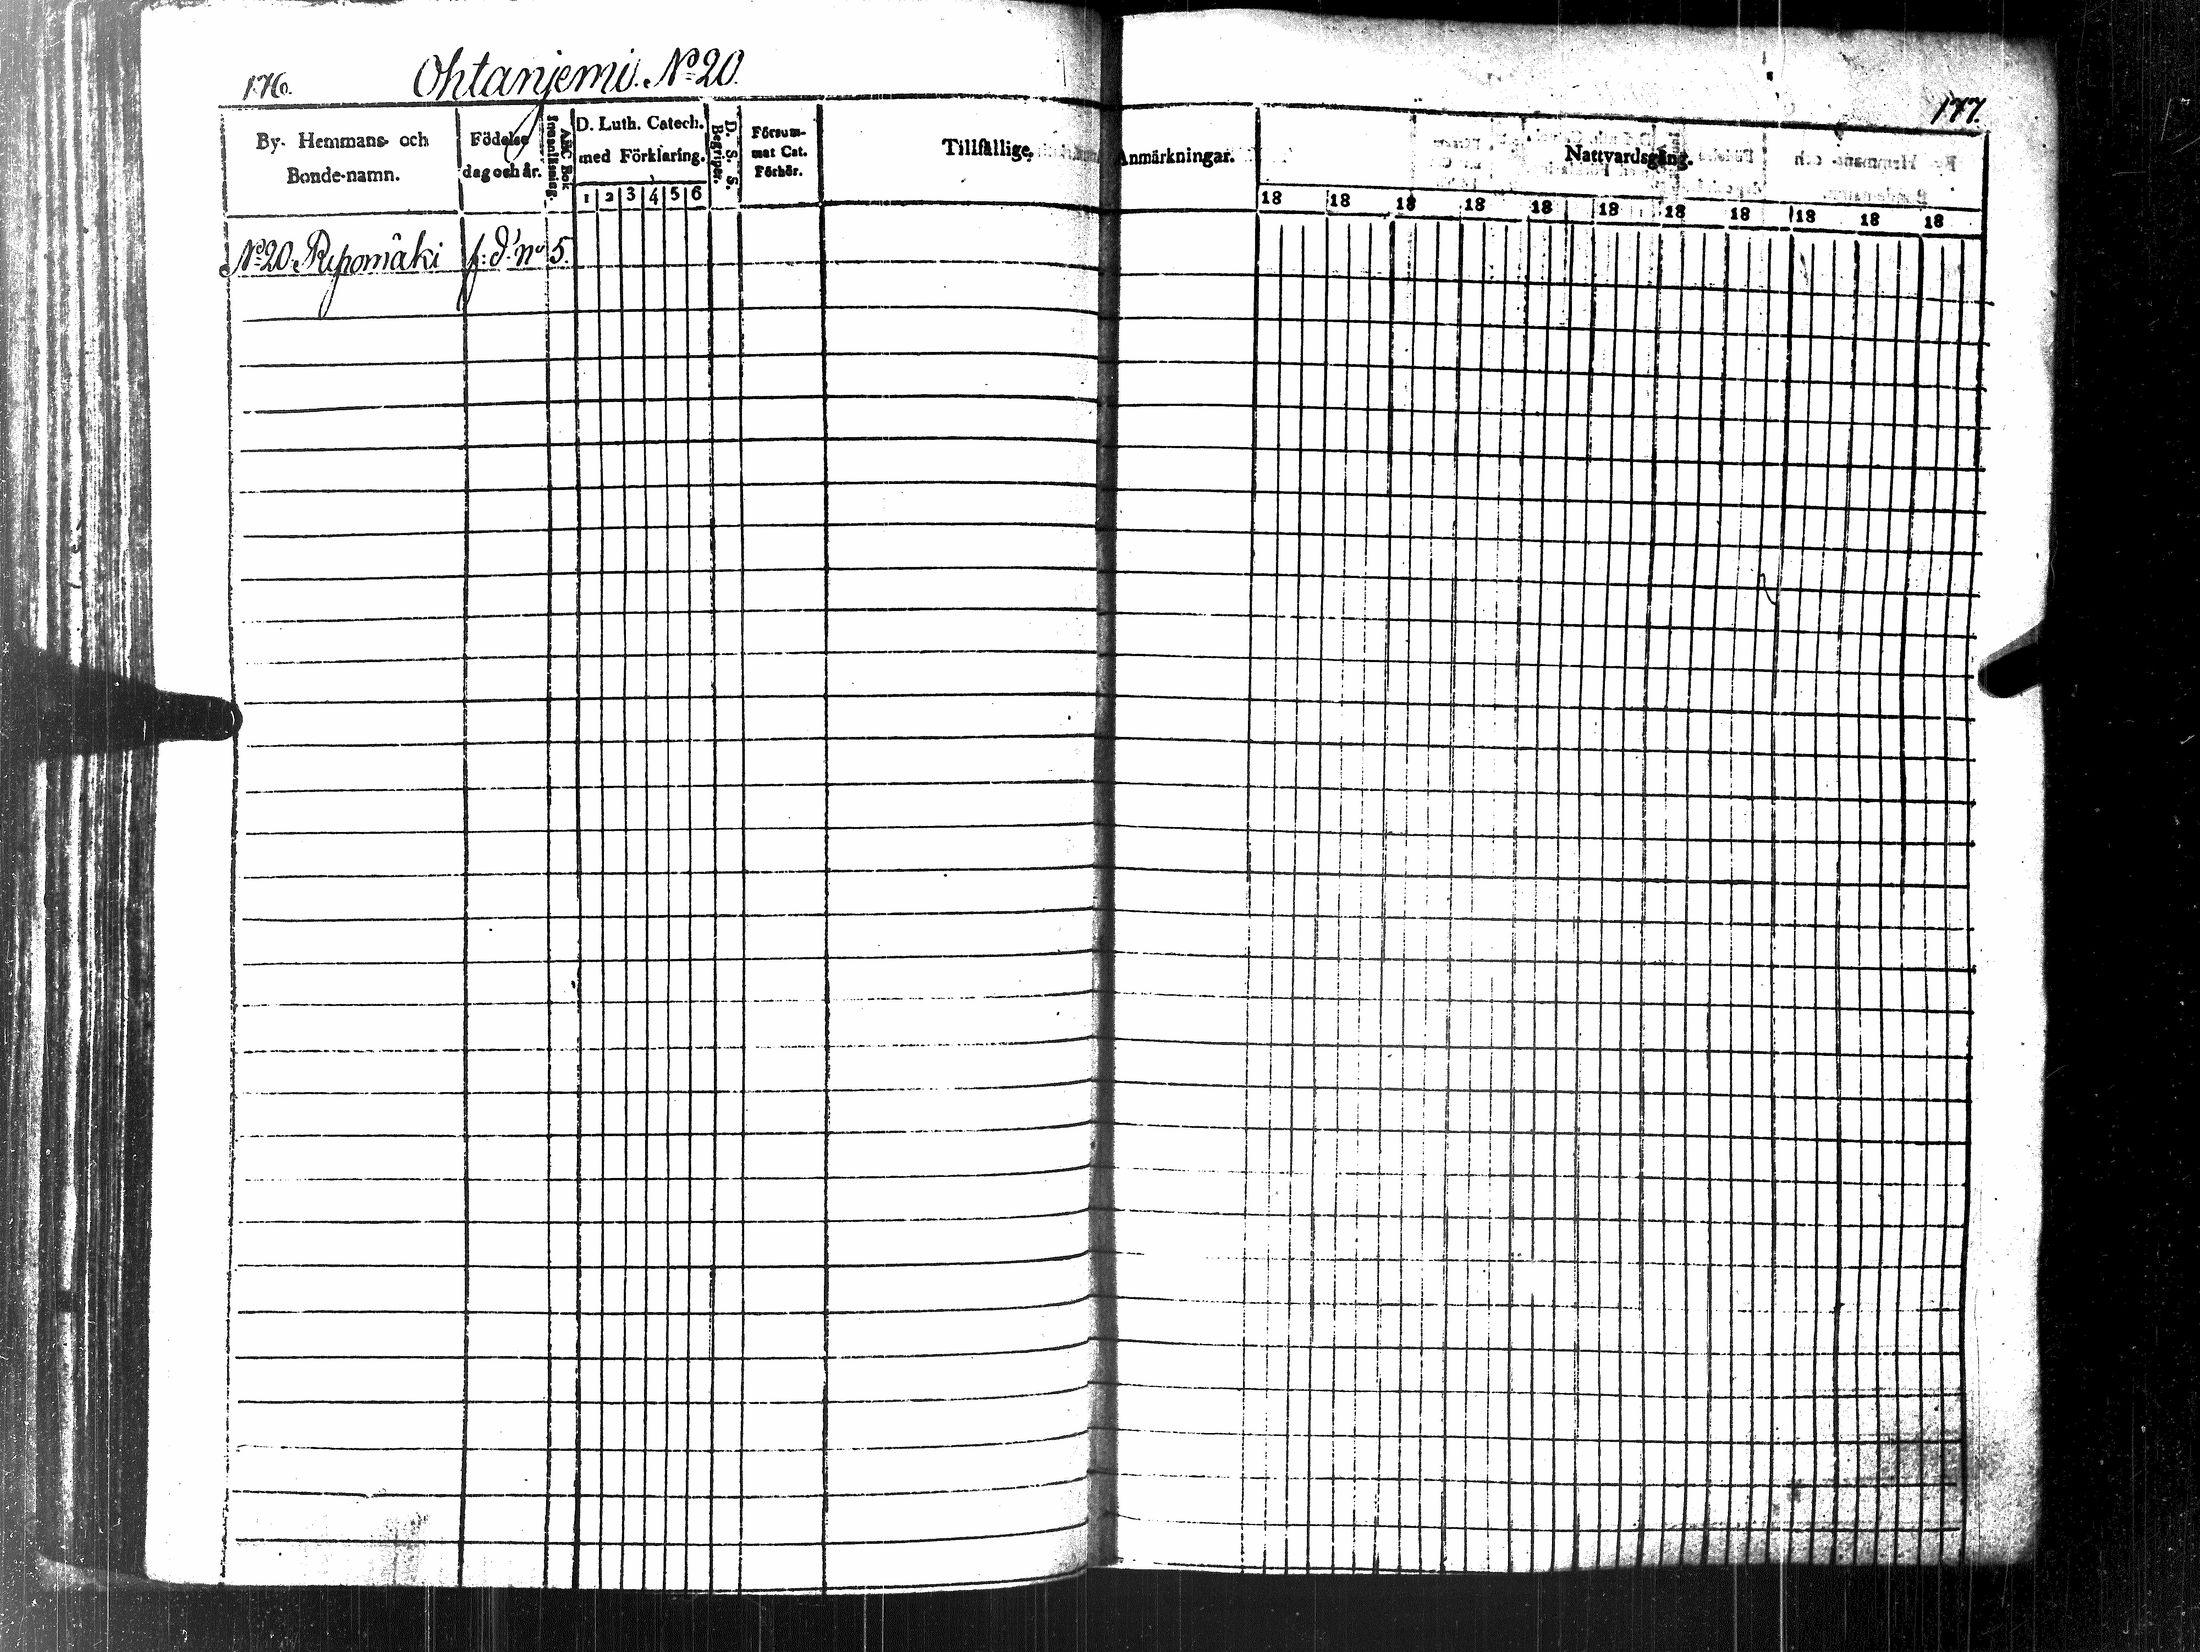 176.
Ohtanjemi. No 20.
177.
By- Hemmans- och
Bonde-namn.
Födelse
dag och år.
ABC Bok
Innanläsning.
D. Luth. Catech.
med Förklaring.
1 2 3 4 5 6
D. S. S.
Begriper.
Försum-
mat Cat.
Förhör.
Tillfällige
Anmärkningar.
Nattvardsgång.
18 18 18 18 18 18 18 18 18 18 18
No 20. Repomäki f: d: no 5.